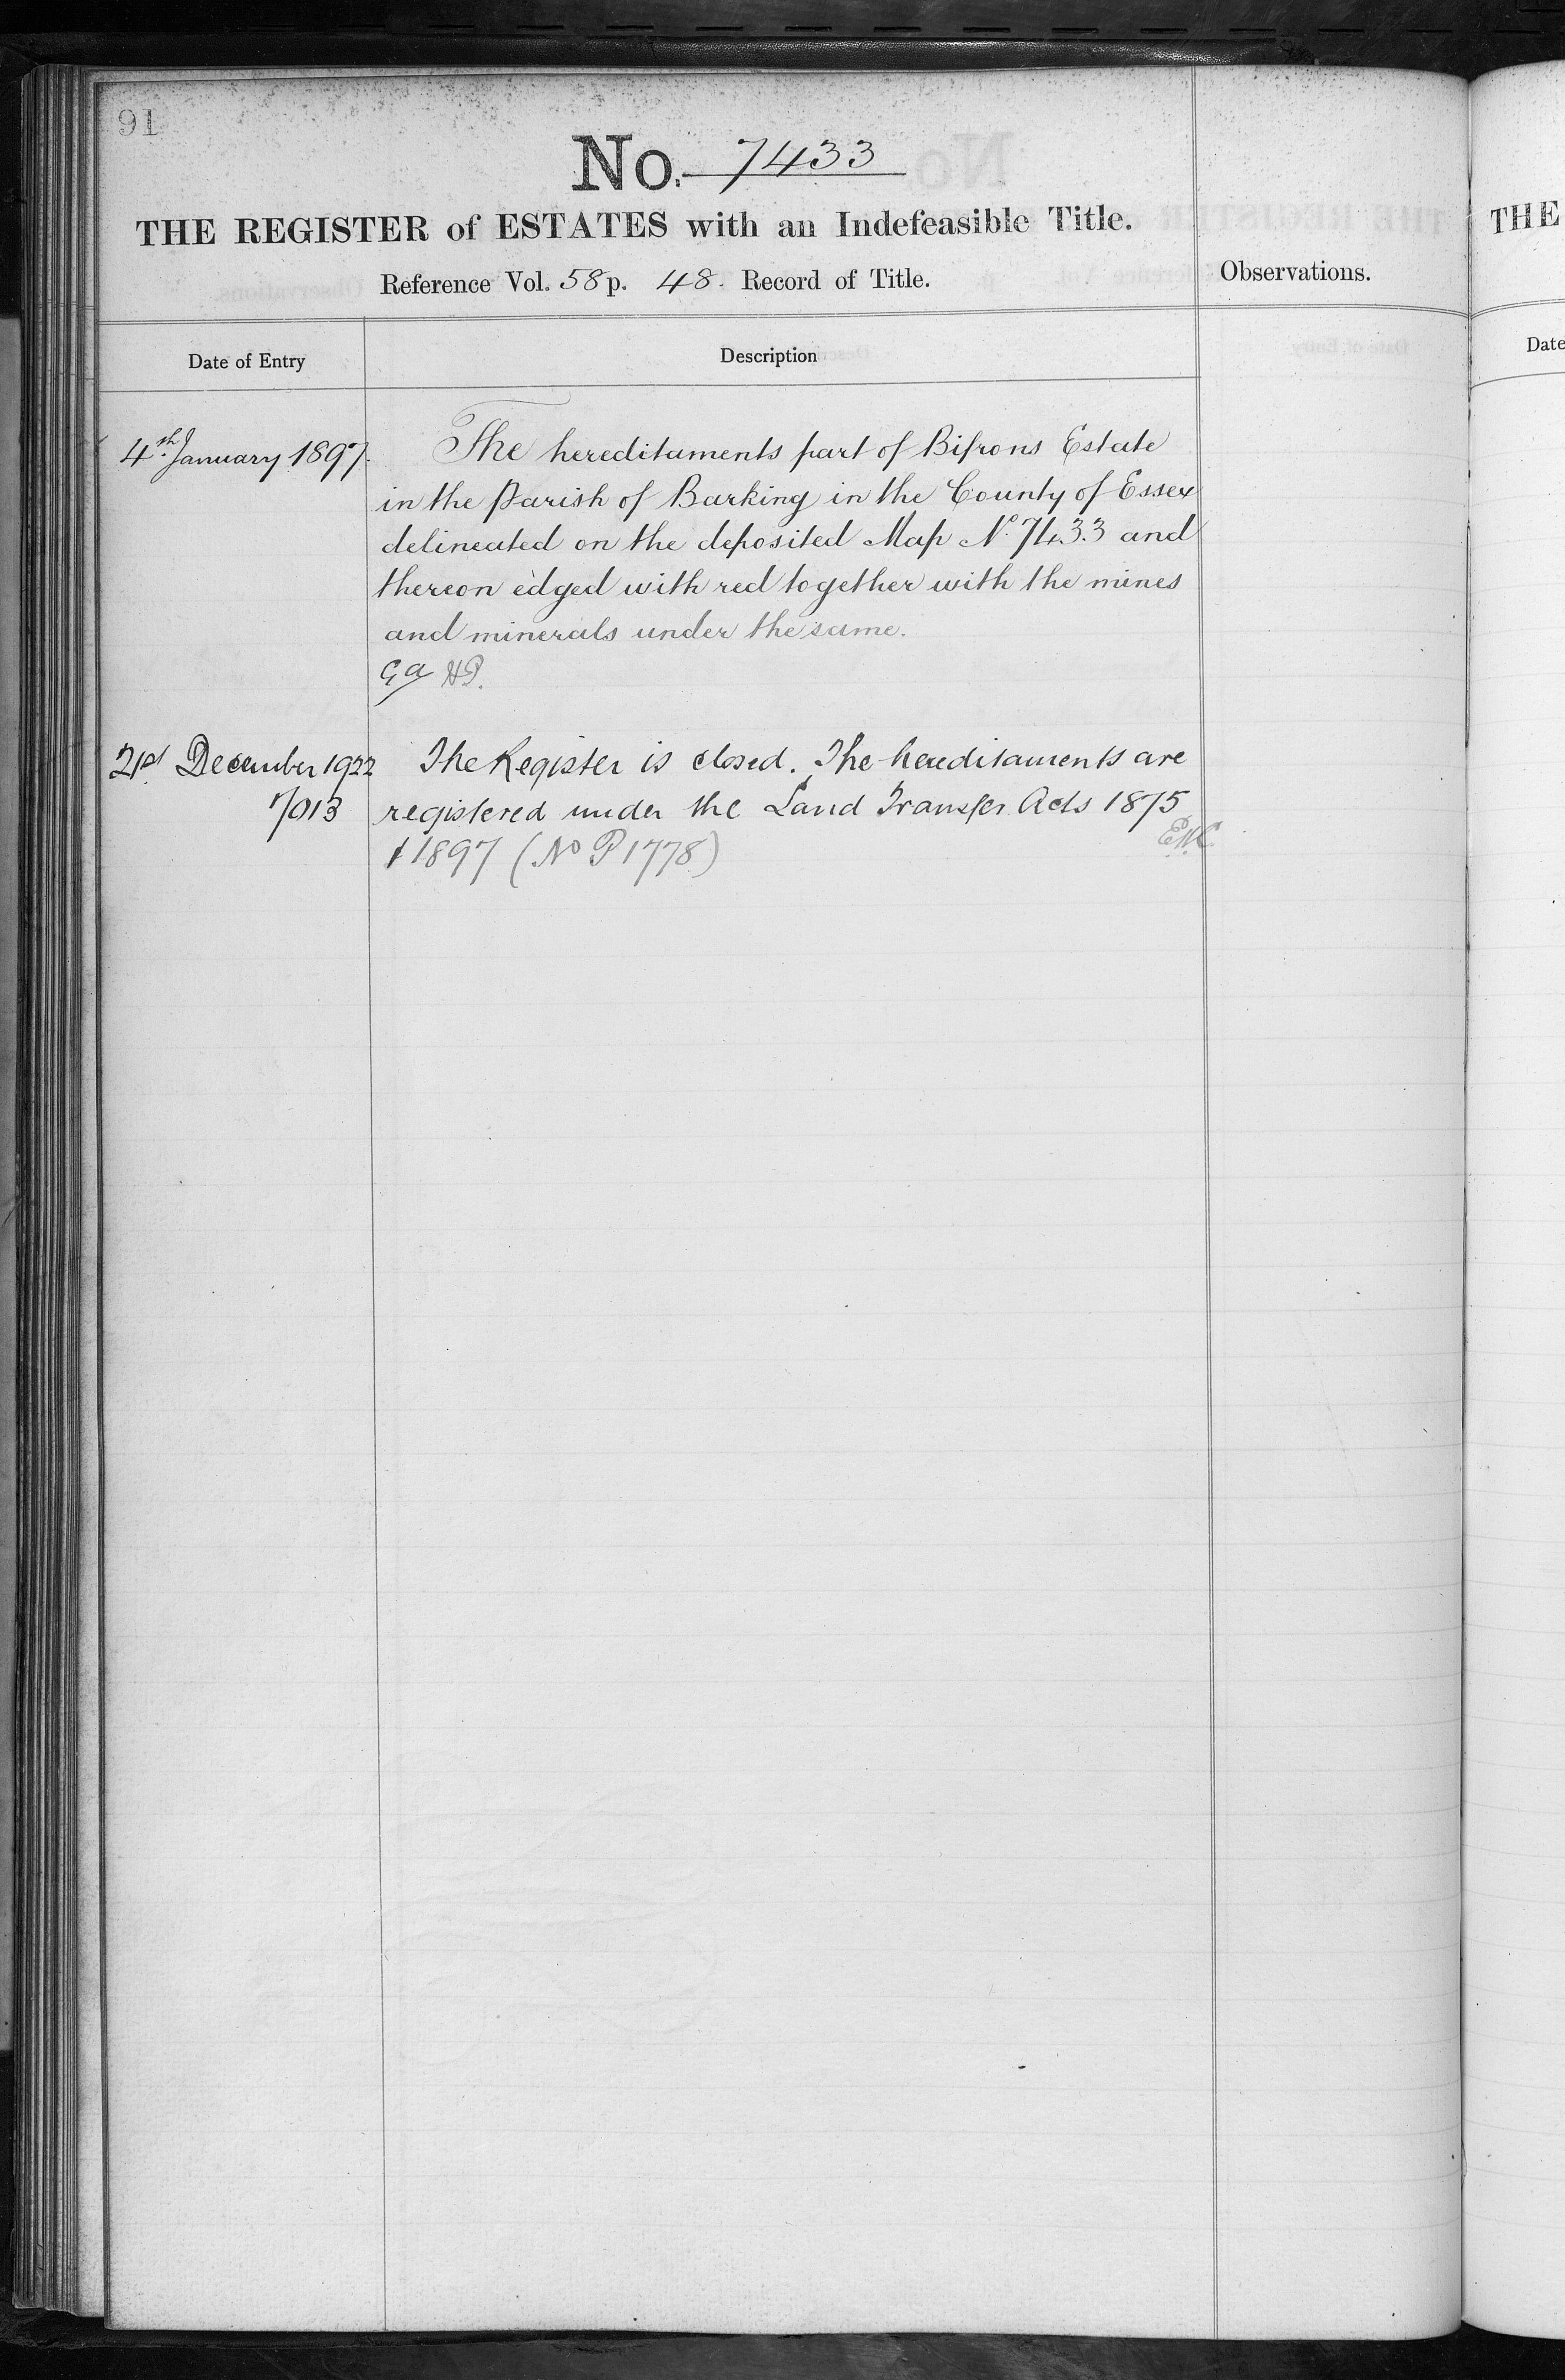 91
No. 7433
THE REGISTER of ESTATES with an Indefeasible Title.
Reference Vol. 58 p. 48. Record of Title.
Observations.
Date of Entry
Description
4th January 1897.
The hereditaments part of Bifrons Estate
in the Parish of Barking in the County of Essex
delineated on the deposited Map No. 7433 and
thereon edged with red together with the mines
and minerals under the same.
21st December 1922
The Register is closed. The hereditaments are
registered under the Land Transfer Acts 1875
& 1897 (No P1778)
THE
Date